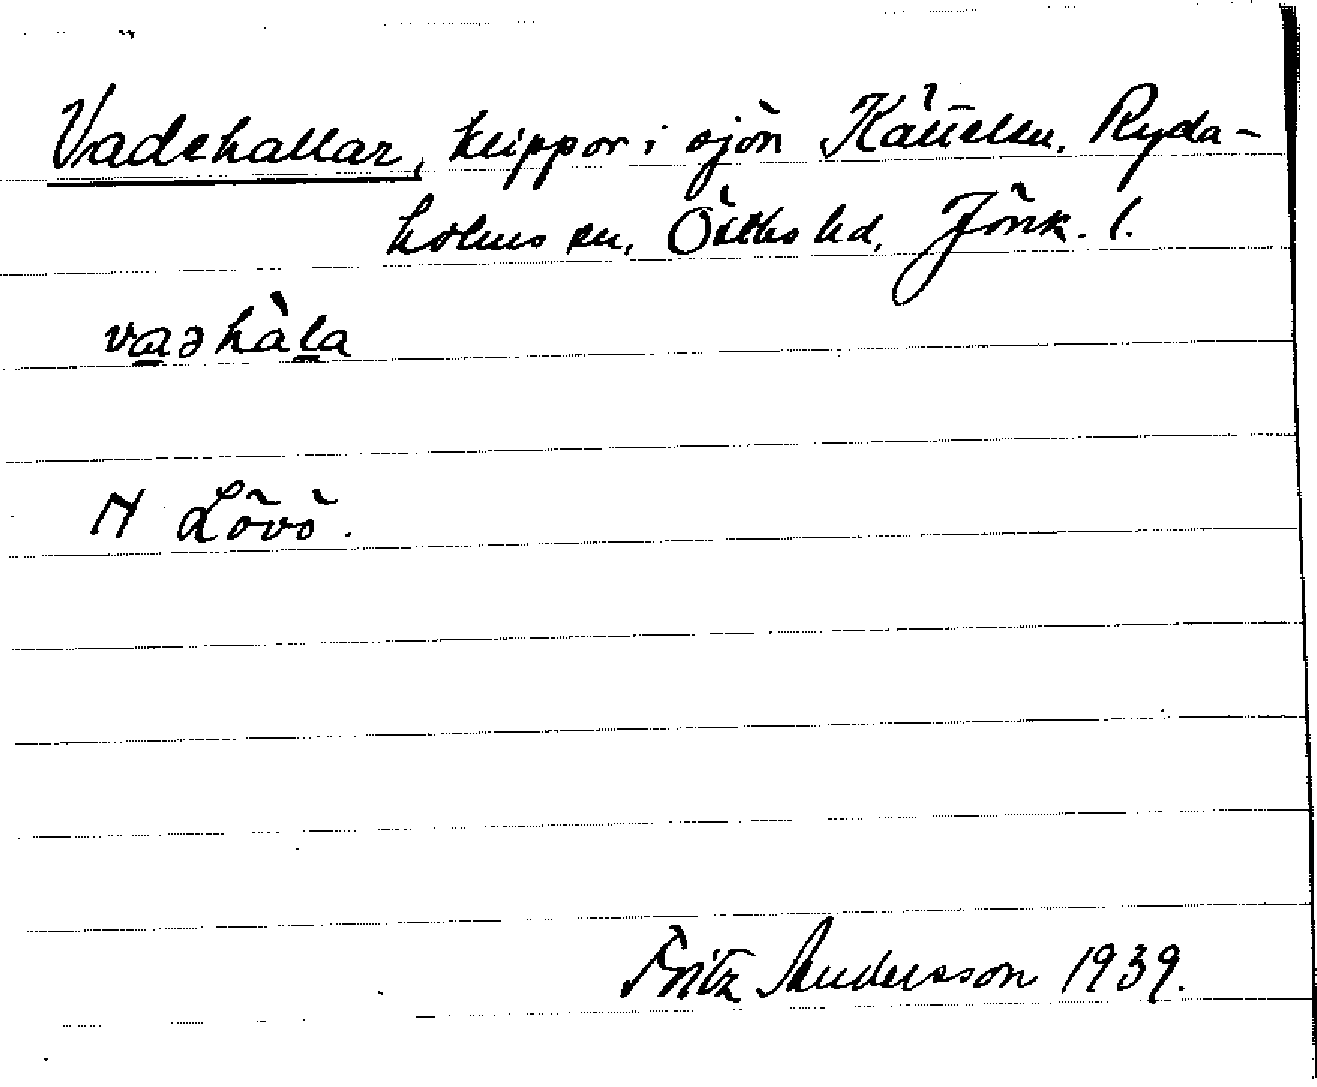 Vadehallar, klippor i sjön Ryda-
holms sn, Östbo hd, Jönk. l.
vaəhàla
N Lövö.
Fritz Andersson 1939.